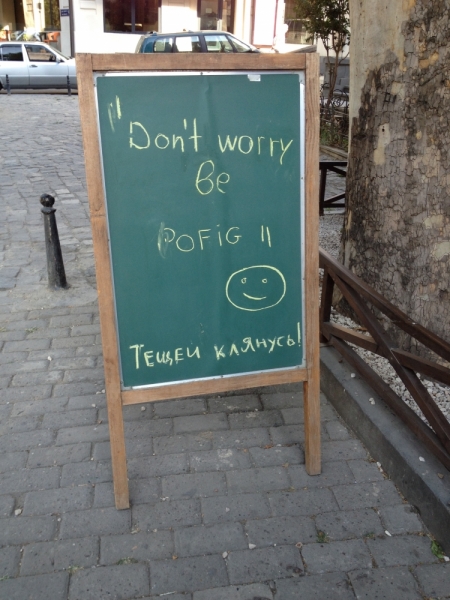 "Don't worry
be
POFiG "
ТЕЩЕЙ КЛЯНУСЬ!